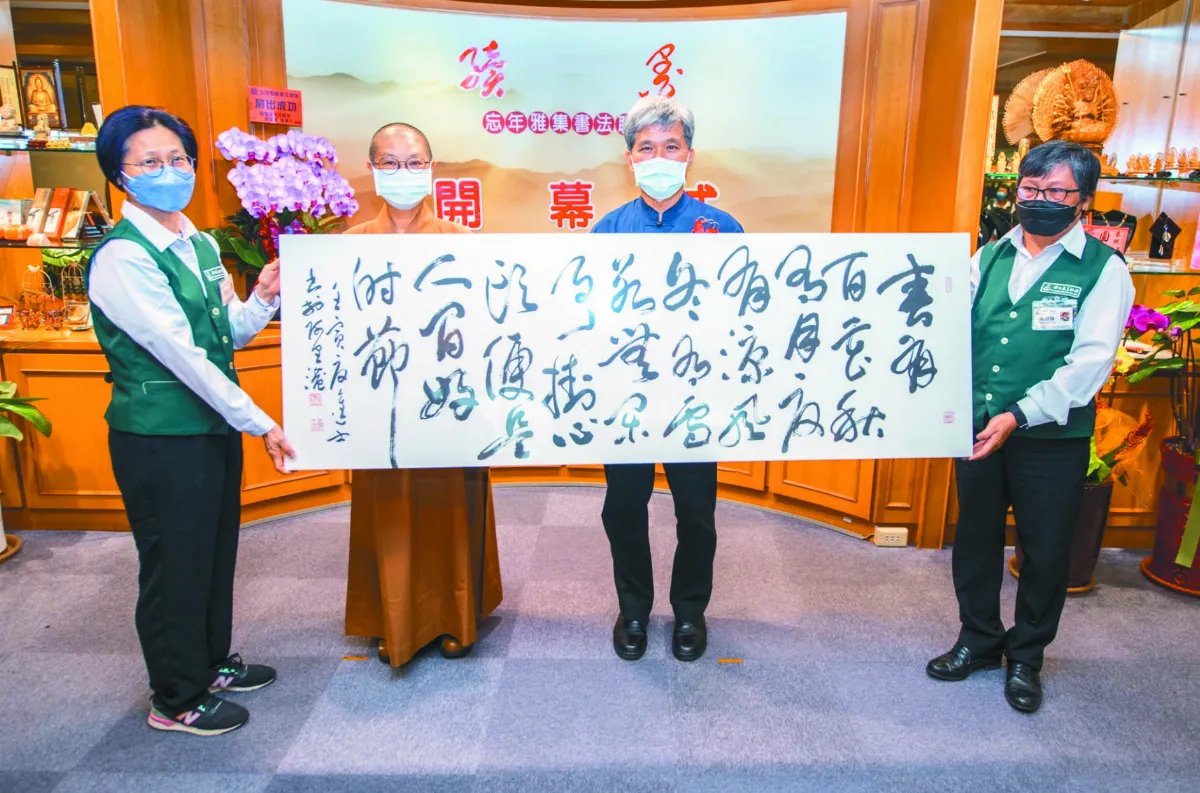 忘年雅集書法聯
開幕
展出成功
春有
百花秋
有月夏
有涼風
冬有雪
若無閑
事掛心
頭便是
人間好
時節
壬寅夏進士